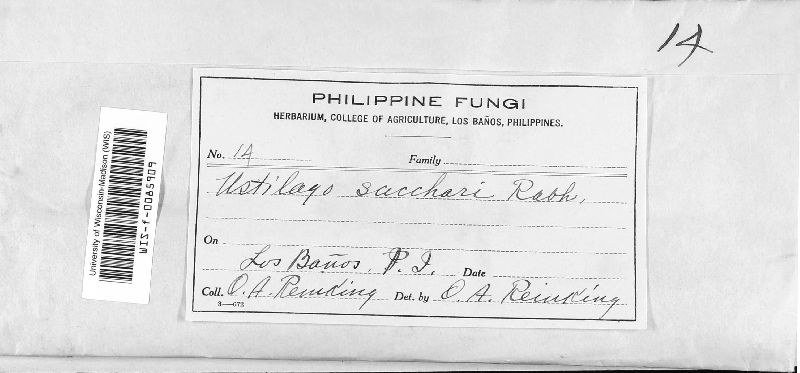 14
PHILIPPINE FUNGI
HERBARIUM, COLLEGE OF AGRICULTURE, LOS BAÑOS, PHILIPPINES.
No. 14 Family
Ustilago sacchari Rabh.
On
Los Baños, P. I. Date
Coll. O. A. Reinking Det. by O. A. Reinking
3—673
University of Wisconsin-Madison (WIS)
WIS-f-0065909